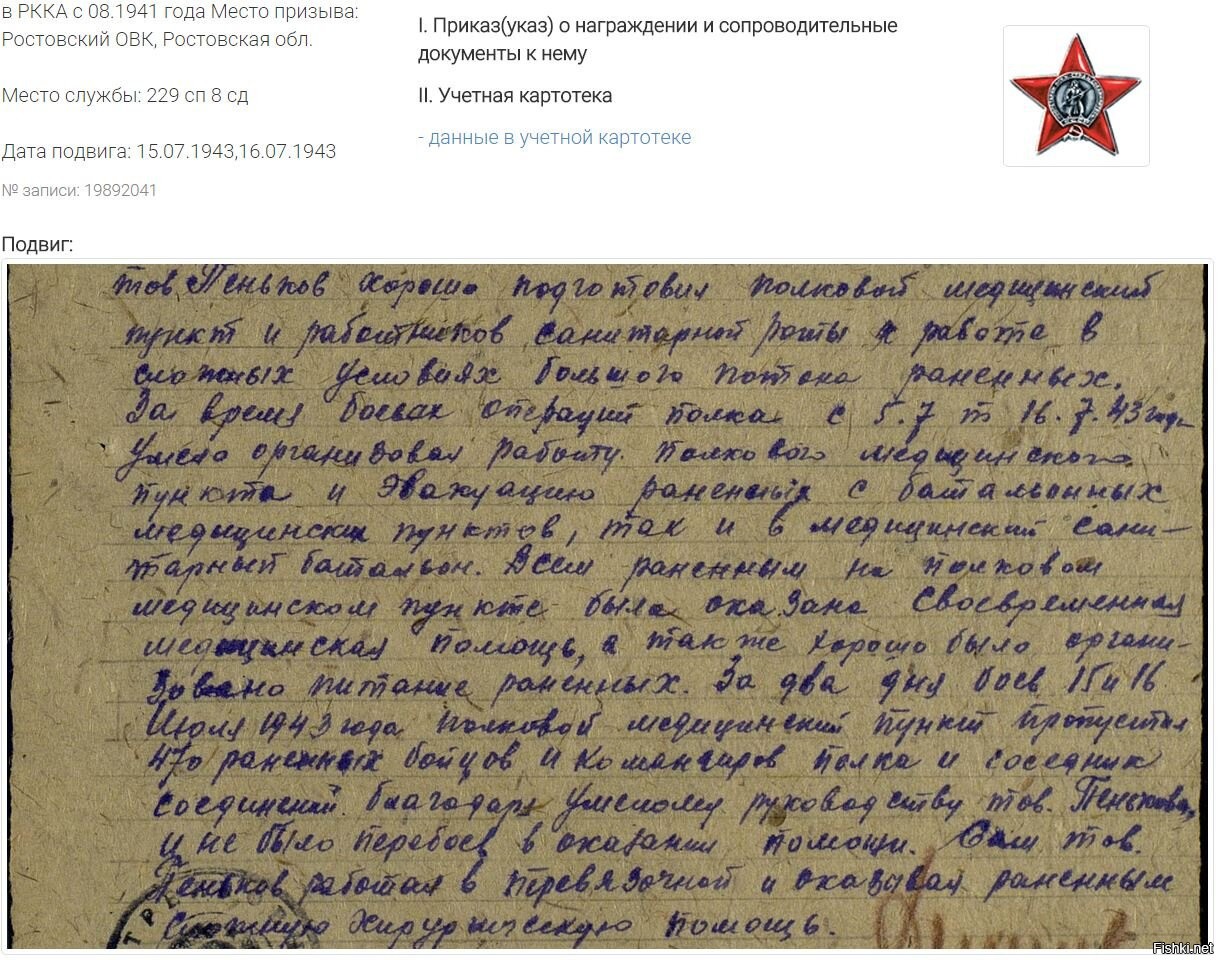 в РККА с 08.1941 года Место призыва:
Ростовский ОВК, Ростовская обл.
Место службы: 229 сп 8 сд
Дата подвига: 15.07.1943,16.07.1943
№ записи: 19892041
I. Приказ(указ) о награждении и сопроводительные
документы к нему
II. Учетная картотека
- данные в учетной картотеке
Подвиг:
тов Пеньков хорошо подготовил полковой медицинский
пункт и работников санитарной роты к работе в
сложных условиях большого потока раненных.
За время боевых операций полка с 5.7 по 16.7.43 года
Умело организовал работу полкового медицинского
пункта и эвакуацию раненных с батальонных
медицинских пунктов, так и в медицинский сани-
тарный батальон. Всем раненным на полковом
медицинском пункте была оказана своевременная
медицинская помощь, а также хорошо было органи-
зовано питание раненных. За два дня боев 15 и 16
Июля 1943 года полковой медицинский пункт пропустил
470 раненных бойцов и командиров полка и соседних
соединений. благодаря умелому руководству тов. Пенькова
и не было перебоев в оказании помощи. Сам тов.
Пеньков работал в перевязочной и оказывал раненным
сложную хирургическую помощь.
Fishki.net